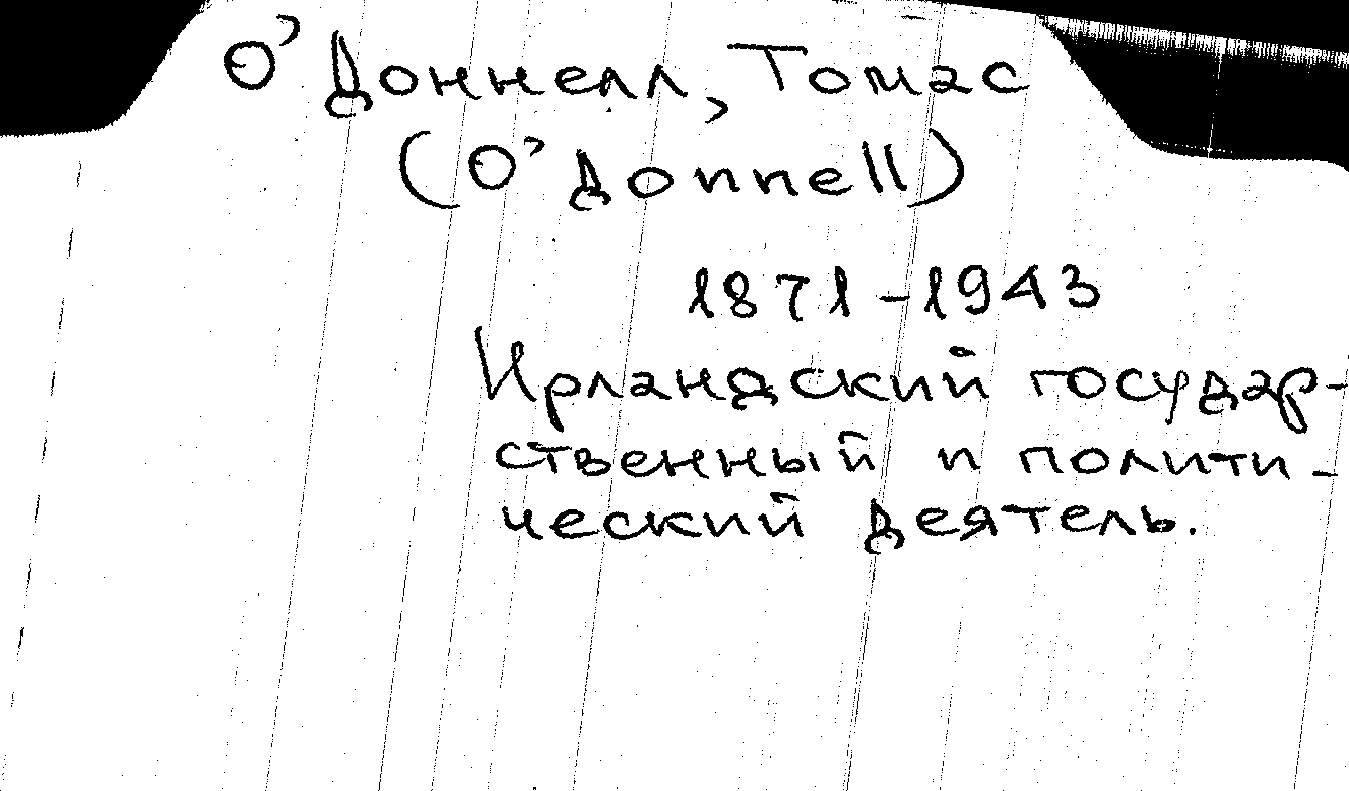 О’Доннелл, Томас
(O’Donnell)
1871-1943
Ирландский государ-
ственный и полити-
ческий деятель.